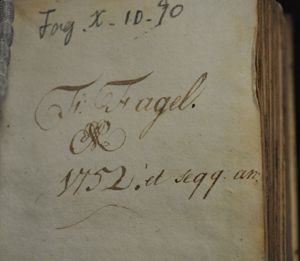 Fag. X-10-90
Fagel.
1752. et seqq. an.